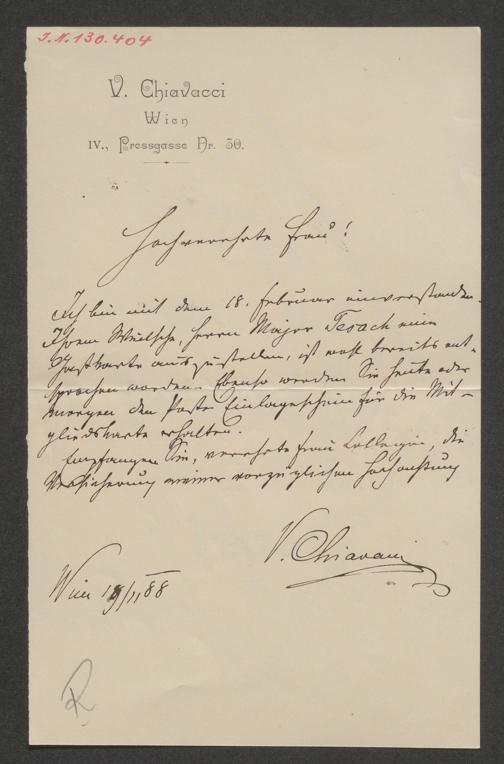 I.N. 130.404
V. Chiavacci
Wien
IV., Pressgasse Nr. 30.
Hochverehrte Frau!
Ich bin mit dem 18. Februar einverstanden.
Ihrem Wunsche, Herrn Major Tesach eine
Gastkarte auszustellen, ist wohl bereits ent-
sprochen worden. Ebenso werden Sie heute oder
morgen den Posteinlageschein für die Mit-
gliedskarte erhalten.
Empfangen Sie, verehrte Frau Collegin, die
Versicherung meiner vorzüglichen Hochachtung
V. Chiavacci
Wien 88
R